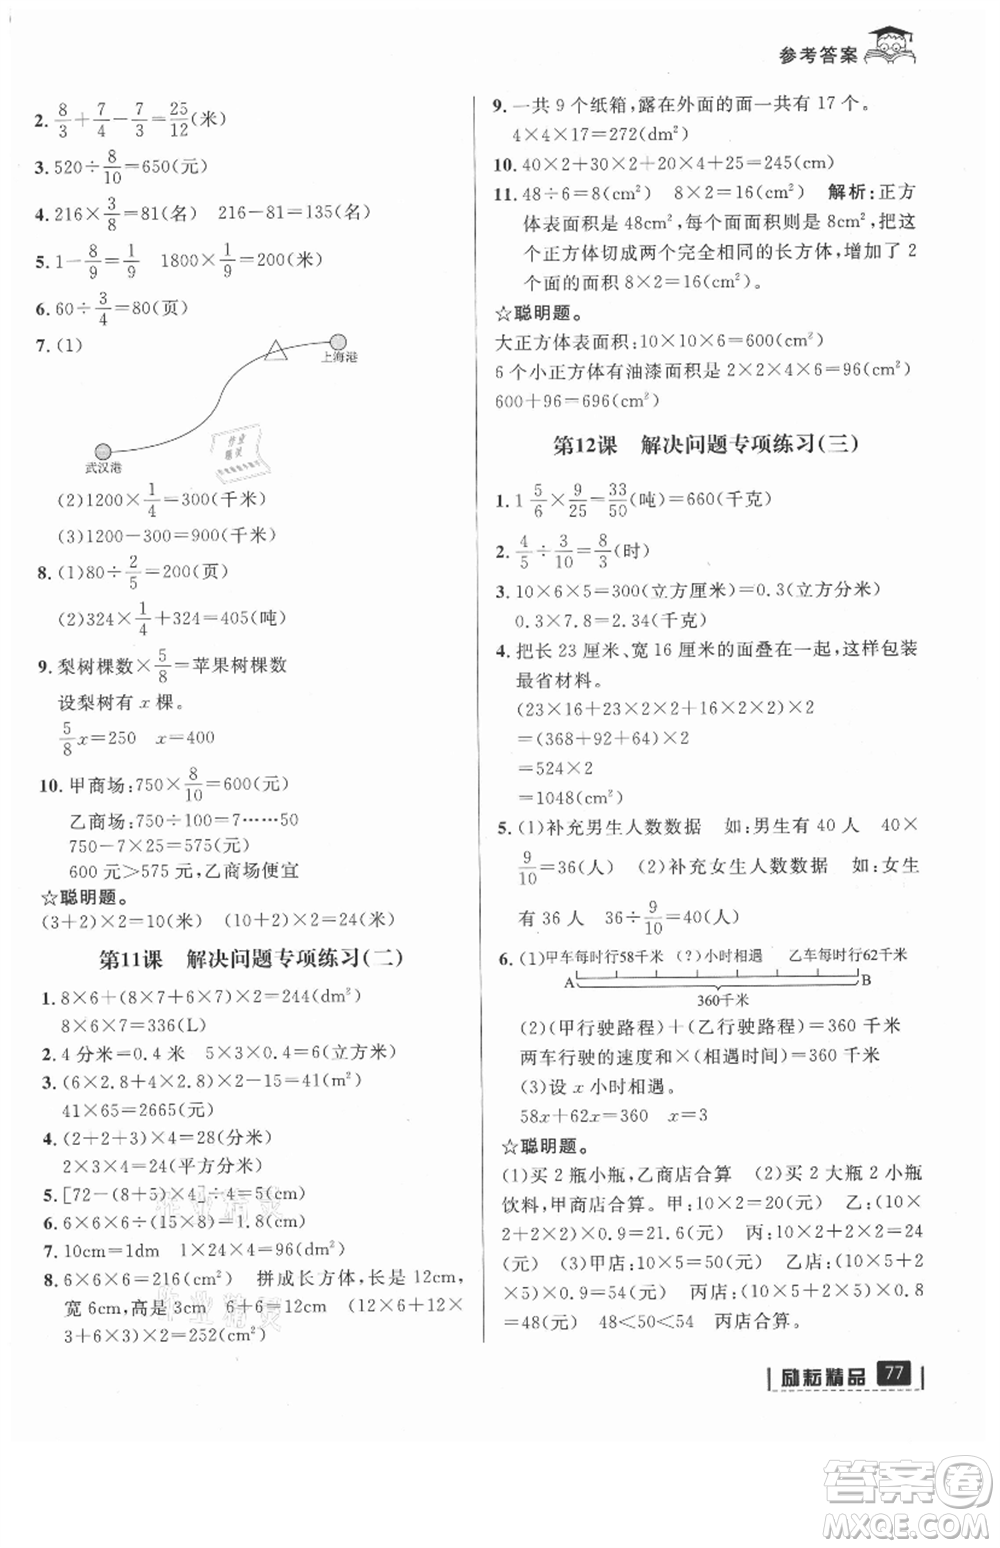 参考答案
2. 8/3+7/4-7/3=25/12(米)
3. 520÷8/10=650(元)
4. 216×3/8=81(名) 216-81=135(名)
5. 1-8/9=1/9 1800×1/9=200(米)
6. 60÷3/4=80(页)
7. (1)
上海港
武汉港
(2)1200×1/4=300(千米)
(3)1200-300=900(千米)
8. (1)80÷2/5=200(页)
(2)324×1/4+324=405(吨)
9. 梨树棵数×5/8=苹果树棵数
设梨树有 x 棵。
5/8x=250 x=400
10. 甲商场:750×8/10=600(元)
乙商场:750÷100=7……50
750-7×25=575(元)
600 元>575 元,乙商场便宜
☆聪明题。
(3+2)×2=10(米) (10+2)×2=24(米)
第11课 解决问题专项练习(二)
1. 8×6+(8×7+6×7)×2=244(dm²)
8×6×7=336(L)
2. 4 分米=0.4 米 5×3×0.4=6(立方米)
3. (6×2.8+4×2.8)×2-15=41(m²)
41×65=2665(元)
4. (2+2+3)×4=28(分米)
2×3×4=24(平方分米)
5. [72-(8+5)×4]÷4=5(cm)
6. 6×6×6÷(15×8)=1.8(cm)
7. 10cm=1dm 1×24×4=96(dm²)
8. 6×6×6=216(cm²) 拼成长方体,长是 12cm,
宽 6cm,高是 3cm 6+6=12(cm) (12×6+12×
3+6×3)×2=252(cm²)
9. 一共 9 个纸箱,露在外面的面一共有 17 个。
4×4×17=272(dm²)
10. 40×2+30×2+20×4+25=245(cm)
11. 48÷6=8(cm²) 8×2=16(cm²) 解析:正方
体表面积是 48cm²,每个面面积则是 8cm²,把这
个正方体切成两个完全相同的长方体,增加了 2
个面的面积 8×2=16(cm²)。
☆聪明题。
大正方体表面积:10×10×6=600(cm²)
6 个小正方体有油漆面积是 2×2×4×6=96(cm²)
600+96=696(cm²)
第12课 解决问题专项练习(三)
1. 1 5/6×9/25=33/50(吨)=660(千克)
2. 4/5÷3/10=8/3(时)
3. 10×6×5=300(立方厘米)=0.3(立方分米)
0.3×7.8=2.34(千克)
4. 把长 23 厘米、宽 16 厘米的面叠在一起,这样包装
最省材料。
(23×16+23×2×2+16×2×2)×2
=(368+92+64)×2
=524×2
=1048(cm²)
5. (1)补充男生人数数据 如:男生有 40 人 40×
9/10=36(人) (2)补充女生人数数据 如:女生
有 36 人 36÷9/10=40(人)
6. (1)甲车每时行58千米 (?)小时相遇 乙车每时行62千米
A B
360千米
(2)(甲行驶路程)+(乙行驶路程)=360 千米
两车行驶的速度和×(相遇时间)=360 千米
(3)设 x 小时相遇。
58x+62x=360 x=3
☆聪明题。
(1)买 2 瓶小瓶,乙商店合算 (2)买 2 大瓶 2 小瓶
饮料,甲商店合算。甲:10×2=20(元) 乙:(10×
2+2×2)×0.9=21.6(元) 丙:10×2+2×2=24
(元) (3)甲店:10×5=50(元) 乙店:(10×5+2
×5)×0.9=54(元) 丙店:(10×5+2×5)×0.8
=48(元) 48<50<54 丙店合算。
励耘精品 77
作业精灵
作业精灵
作业精灵
答案卷
MXQE.COM